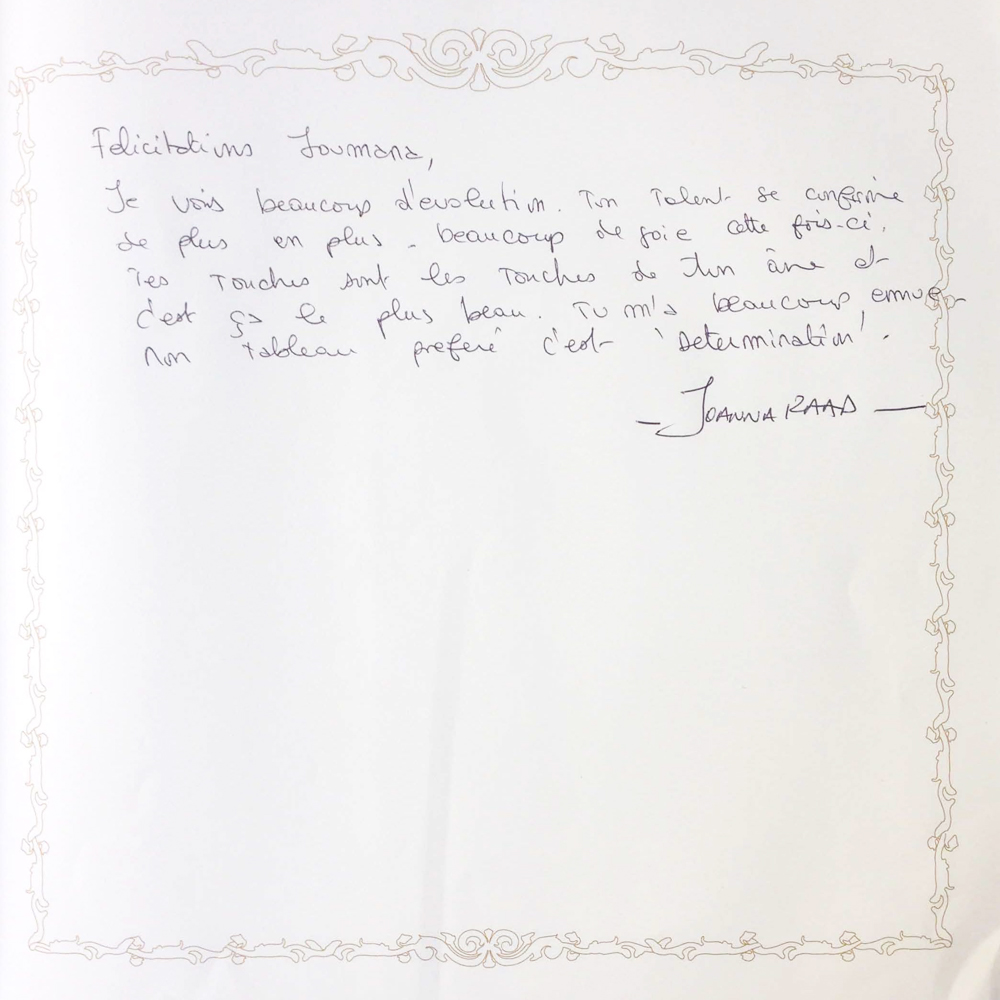 Felicitations Joumana,
Je vois beaucoup d'evolution. Ton Talent se confirme
de plus en plus - beaucoup de joie cette fois-ci.
Tes Touches sont les Touches de ton âme et
c'est ça le plus beau. Tu m'a beaucoup emue -
Mon tableau preferé c'est 'Determination'.
- JOANNA RAAD -